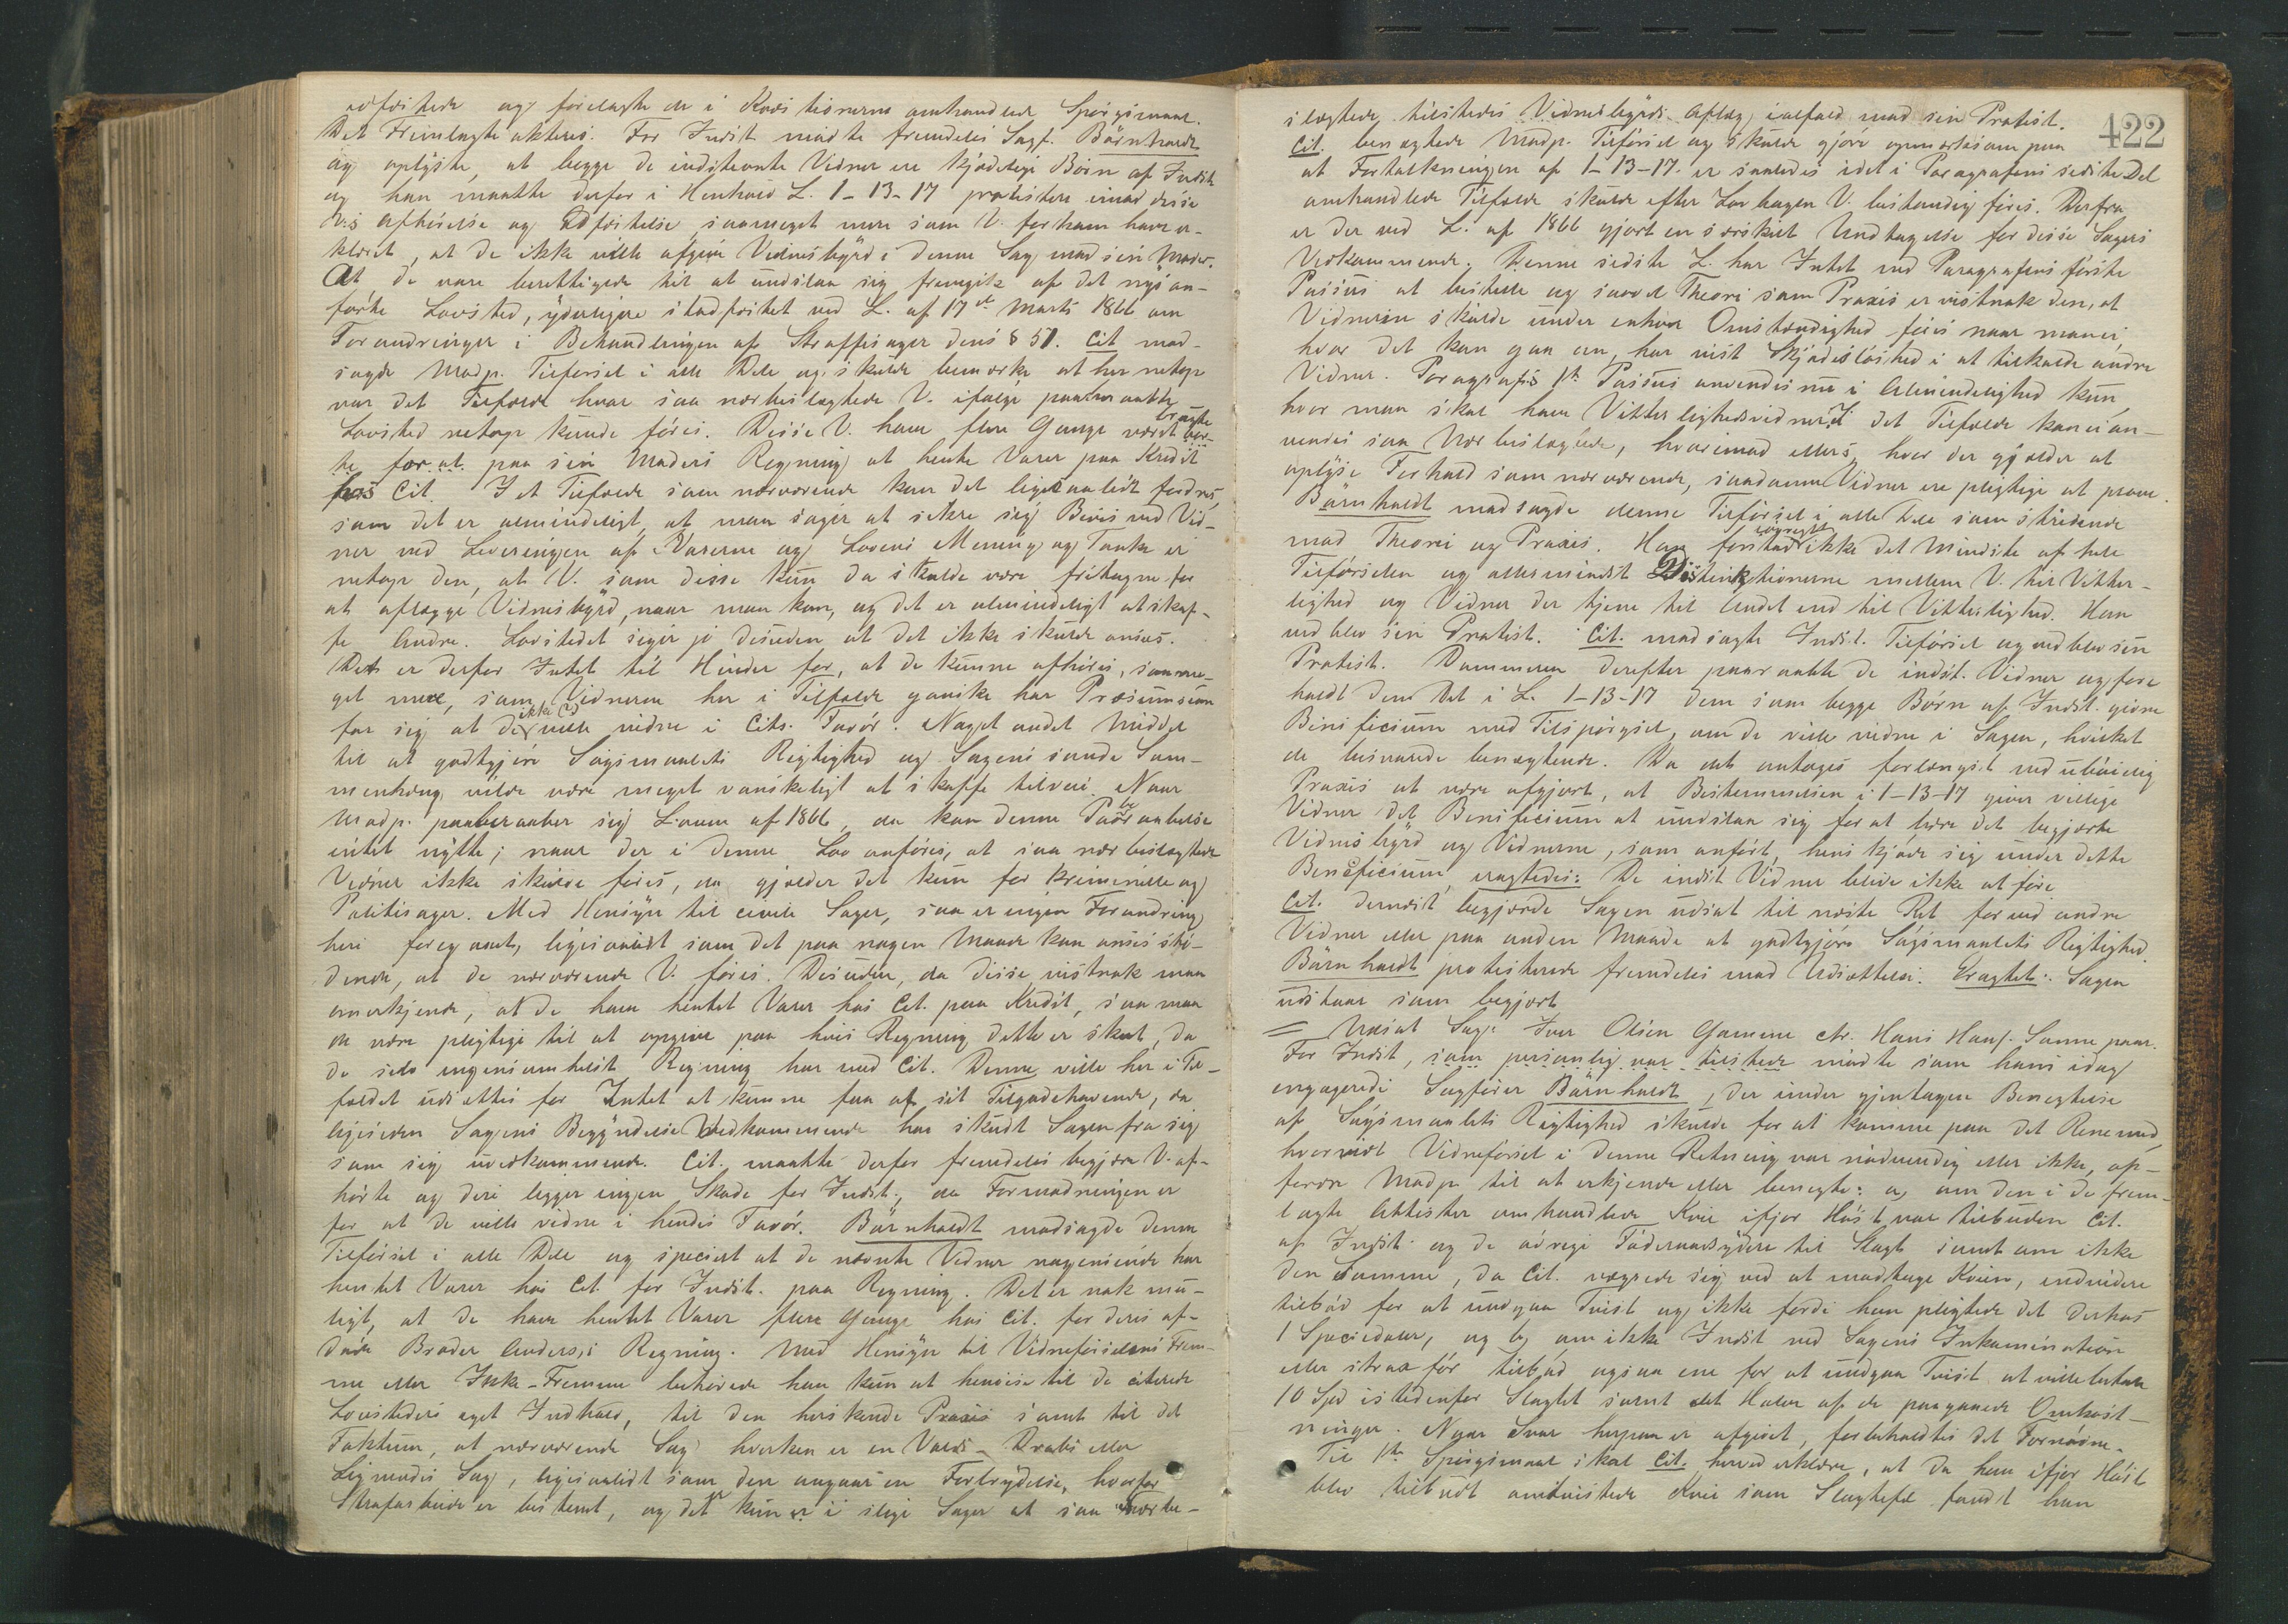 edfæstede og forelagte de i Kvæstionerne omhandlede Spørgsmaal.
Det Fremlagte akteres. For Indst. mødte fremdeles Sagf. Bärnholdt
og oplyste, at begge de indstevnte Vidner ere kjødelige Børn af Indst.
og han maatte derfor i Henhold L. 1-13-17 protestere imod disse
V.s Afhørelse og Edfæstelse, saameget mere som V. for ham have er-
klæret, at de ikke ville afgive Vidnesbyrd i denne Sag mod sin Moder.
At de vare berettigede til at undslaa sig fremgik af det nys an-
førte Lovsted, yderligere stadfæstet ved L. af 17de Marts 1866 om
Forandringer i Behandlingen af Straffesager dens § 51. Cit. mod-
sagde Modp. Tilførsel i alle Dele og skulde bemærke at her netop
var det Tilfælde hvor saa nærbeslægtede V. ifølge paaberaabte
Lovsted netop kunde føres. Disse V. have flere Gange været brugte
for at paa sin Moders Regning at hente Varer paa Kredit
hos Cit. I et Tilfælde som nærværende kan det ligesaalidt fordres,
som det er almindeligt, at man søger at sikre sig Bevis ved Vid-
ner ved Leveringen af Varerne og Lovens Mening og Tanke er
netop den, at V. som disse kun da skulde være fritagne for
at aflægge Vidnesbyrd, naar man kan, og det er almindeligt at skaf-
fe Andre. Lovstedet siger jo desuden at det ikke skulde ansees.
Det er derfor Intet til Hinder for, at de kunne afhøres, saame-
get mere, som Vidnerne her i Tilfælde ganske har Præsumsion
for sig at de ikke ville vidne i Cits. Favør. Noget andet Middel
til at godtgjøre Søgsmaalets Rigtighed og Sagens sande Sam-
menhæng vilde være meget vanskeligt at skaffe tilveie. Naar
Modp. paaberaaber sig Loven af 1866, da kan denne Paaberaabelse
intet nytte; naar der i denne Lov anføres, at saa nær beslægtede
Vidner ikke skulde føres, da gjælder det kun for kreminelle og
Politisager. Med Hensyn til civile Sager, saa er ingen Forandring
heri foregaaet, ligesaalidt som det paa nogen Maade kan ansees stri-
dende, at de nærværende V. føres. Desuden, da disse vistnok maa
anerkjende, at de have hentet Varer hos Cit. paa Kredit, saa maa
de være pligtige til at opgive paa hvis Regning dette er skeet, da
de selv ingensomhelst Regning har med Cit. Denne ville her i Til-
fældet udsættes for Intet at kunne faa af sit Tilgodehavende, da
ligesiden Sagens Begyndelse Vedkommende har skudt Sagen fra sig
som sig uvedkommende. Cit. maatte derfor fremdeles begjære V. af-
hørte og deri ligger ingen Skade for Indst., da Formodningen er
for at de ville vidne i hendes Favør. Bärnholdt modsagde denne
Tilførsel i alle Dele og specielt at de nævnte Vidner nogensinde har
hentet Varer hos Cit. for Indst. paa Regning. Det er nok mu-
ligt, at de have hentet Varer flere Gange hos Cit. for deres af-
døde Broder Anders's Regning. Med Hensyn til Vidneførselens Frem-
me eller Ikke-Fremme behøvede han kun at henvise til de citerede
Lovsteders eget Indhold, til den herskende Praxis samt til det
Faktum, at nærværende Sag hverken er en Volds- Drabs eller
Ligmodes Sag, ligesaalidt som den angaar en Forbrydelse, hvorfor
Strafarbeide er bestemt, og det er kun i slige Sager at saa nærbe-
422
slægtede tilstedes Vidnesbyrds Aflæg ialfald mod sin Protest.
Cit. benægtede Modp. Tilførsel og skulde gjøre opmærksom paa
at Fortolkningen af 1-13-17. er saaledes idet i Paragrafens sidste Del
omhandlede Tilfælde skulde efter Lovbogen V. bestandig føres. Derfra
er der ved L. af 1866 gjort en særskilt Undtagelse for disse Sagers
Vedkommende. Denne sidste L. har Intet med Paragrafens første
Passus at bestille og saavel Theori som Praxis er vistnok den, at
Vidnerne skulde under enhver Omstændighed føres naar man ei,
hvor det kan gaa an, har vist Skjødesløshed i at tilkalde andre
Vidner. Paragrafs 1ste Passus anvendes nu i Almindelighed kun
hvor man skal have Vitterlighedsvidner. I det Tilfælde kan ei an-
vendes saa Nærbeslægtede, hvorimod ellers, hvor der gjælder at
oplyse Forhold som nærværende, saadanne Vidner ere pligtige at prove.
Bärnholdt modsagde denne Tilførsel i alle Dele som stridende
mod Theori og Praxis. Han forstod ikke det Mindste af hele
Tilførselen og allermindst Distinktionerne mellem V. til Vitter-
lighed og Vidner der tjene til Andet end til Vitterlighed. Han
vedblev sin Protest. Cit. modsagte Indst. Tilførsel og vedblev sin
Protest. Dommeren derefter paaraabte de indst. Vidner og fore-
holdt dem Det i L. 1-13-17 dem som begge Børn af Indst. givne
Benificium med Tilspørgsel, om de ville vidne i Sagen, hvilket
de besvarede benægtende. Da det antages forlængst ved ubøielig
Praxis at være afgjort, at Bestemmelsen i 1-13-17 giver villige
Vidner det Benificium at undslaa sig for at bære det begjærte
Vidnesbyrd og Vidnerne, som anført, henskjøde sig under dette
Beneficium, eragtedes: De indst. Vidner blive ikke at føre.
Cit. dernæst begjærde Sagen udsat til næste Ret for ved andre
Vidner eller paa anden Maade at godtgjøre Søgsmaalets Rigtighed.
Bärnholdt protesterede fremdeles mod Udsættelse. Eragtet: Sagen
udstaar som begjært
= Udsat Sag: Iver Olsen Gamme ctr. Hans Hans. Sanne paar.
For Indst., som personlig var tilstede mødte som hans idag
engagerede Sagfører Bärnholdt, der under gjentagen Benegtelse
af Søgsmaalets Rigtighed skulde for at komme paa det Rene med,
hvorvidt Vidneførsel i denne Retning var nødvendig eller ikke, op-
fordre Modp. til at erkjende eller benegte: a, om den i de frem-
lagte Attester omhandlede Kvie ifjor Høst var tilbuden Cit.
af Indst. og de øvrige Føderaadsydere til Slagt samt om ikke
den Samme, da Cit. vægrede sig ved at modtage Kvien, endvidere
tilbød for at undgaa Tvist og ikke fordi han pligtede det derhos
1 Speciedaler, og b, om ikke Indst. ved Sagens Inkamination
eller strax før tilbød ogsaa ene for at undgaa Tvist at ville betale
10 Spd istedenfor Slagtet samt det Halve af de paagaaede Omkost-
ninger. Naar Svar herpaa er afgivet, forbeholdtes det Fornødne.
Til 1ste Spørgsmaal skal Cit. herved erklære, at da han ifjor Høst
blev tilbudt omtvistede Kvie som Slagtefæ fandt han